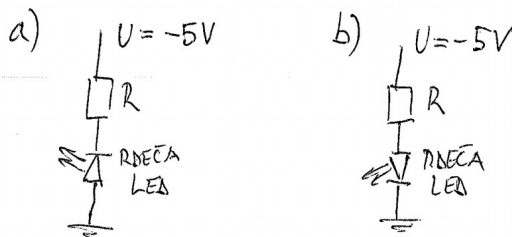 a)
U = -5V
R
RDEČA
LED
b)
U = -5V
R
RDEČA
LED